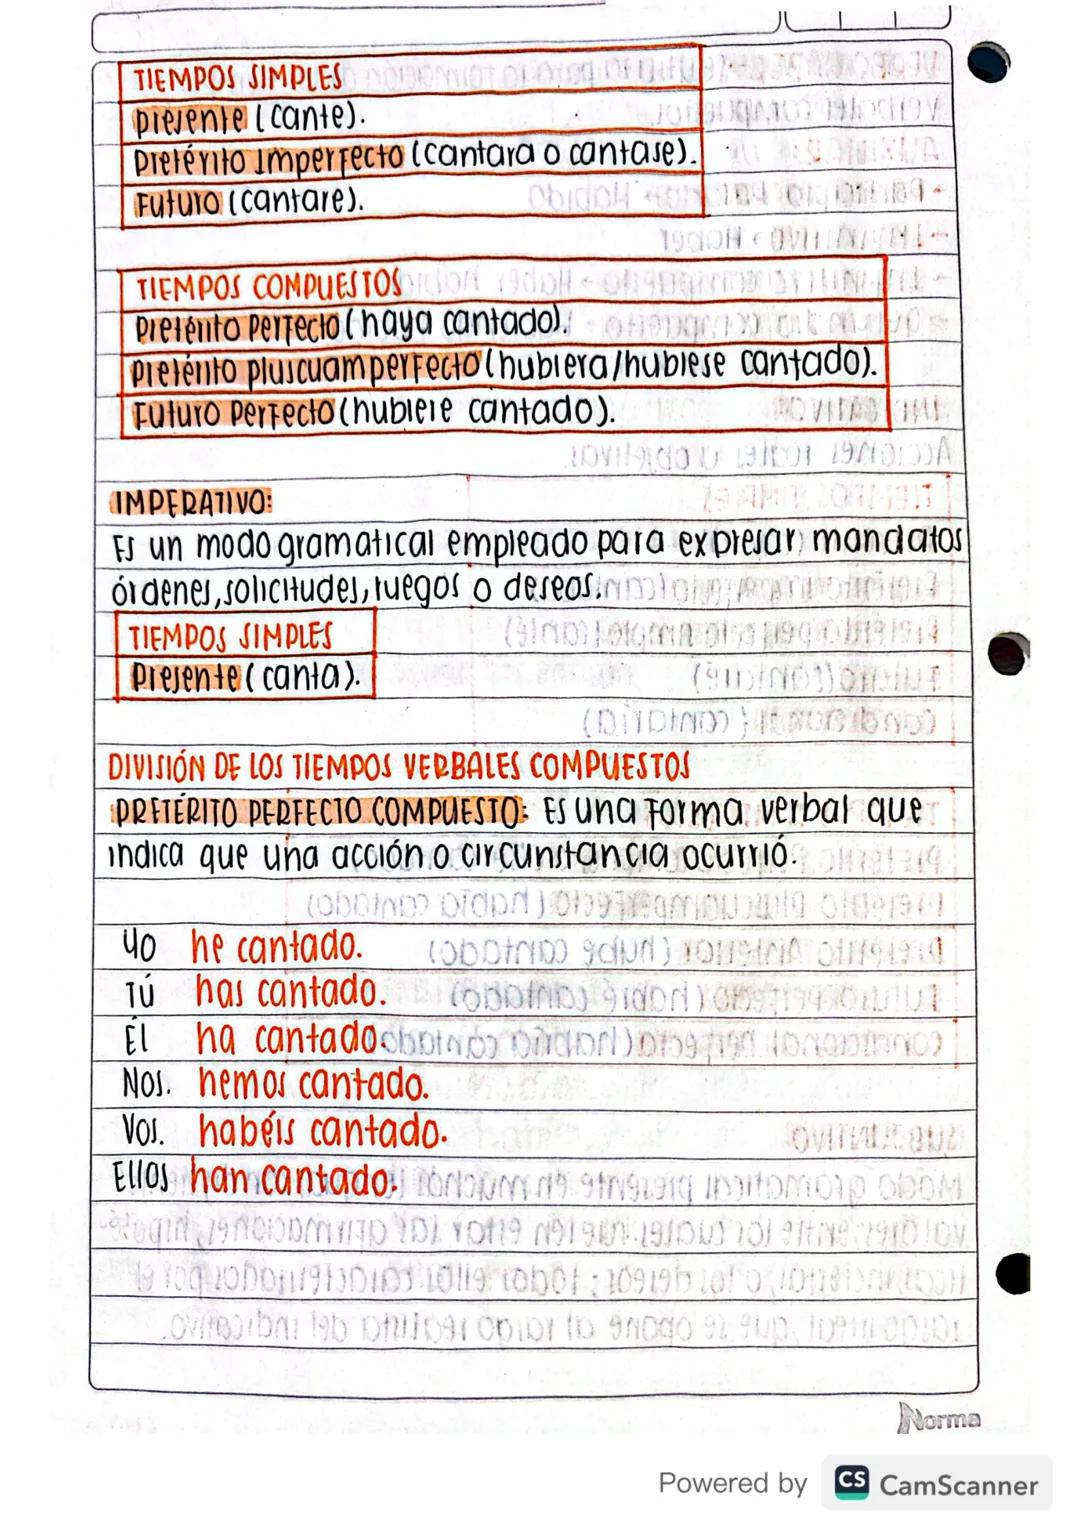 TIEMPOS SIMPLES
presente (cante).
Pretérito Imperfecto (cantara o cantase).
Futuro (cantare).
TIEMPOS COMPUESTOS
Pretérito Perfecto (haya cantado).
Pretérito pluscuamperfecto (hubiera/hubiese cantado).
Futuro Perfecto (hubiere cantado).
IMPERATIVO:
Es un modo gramatical empleado para expresar, mandatos
órdenes, solicitudes, ruegos o deseos.
TIEMPOS SIMPLES
Presente (canta).
DIVISIÓN DE LOS TIEMPOS VERBALES COMPUESTOS
PRETÉRITO PERFECTO COMPUESTO: Es una forma verbal que
indica que una acción o circunstancia ocurrió.
Yo he cantado.
Tú has cantado.
Él ha cantado.
Nos. hemos cantado.
Vos. habéis cantado.
Ellos han cantado.
Norma
Powered by CS CamScanner